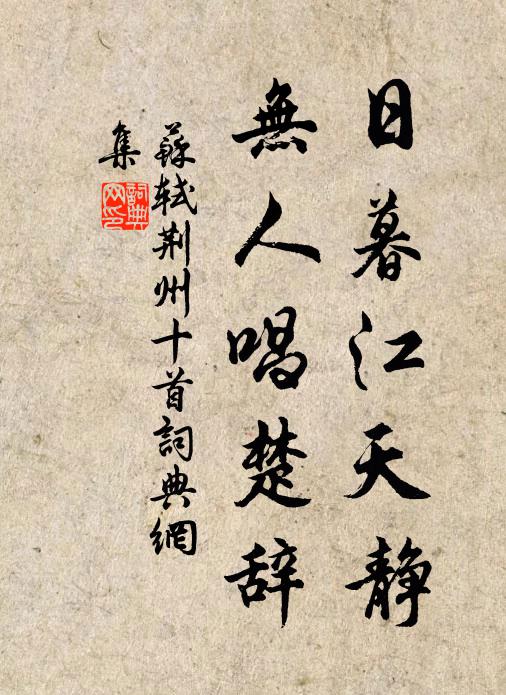 日暮江天静
無人唱楚辞
蘇軾荆州十首詞典網
集
詞典
网印